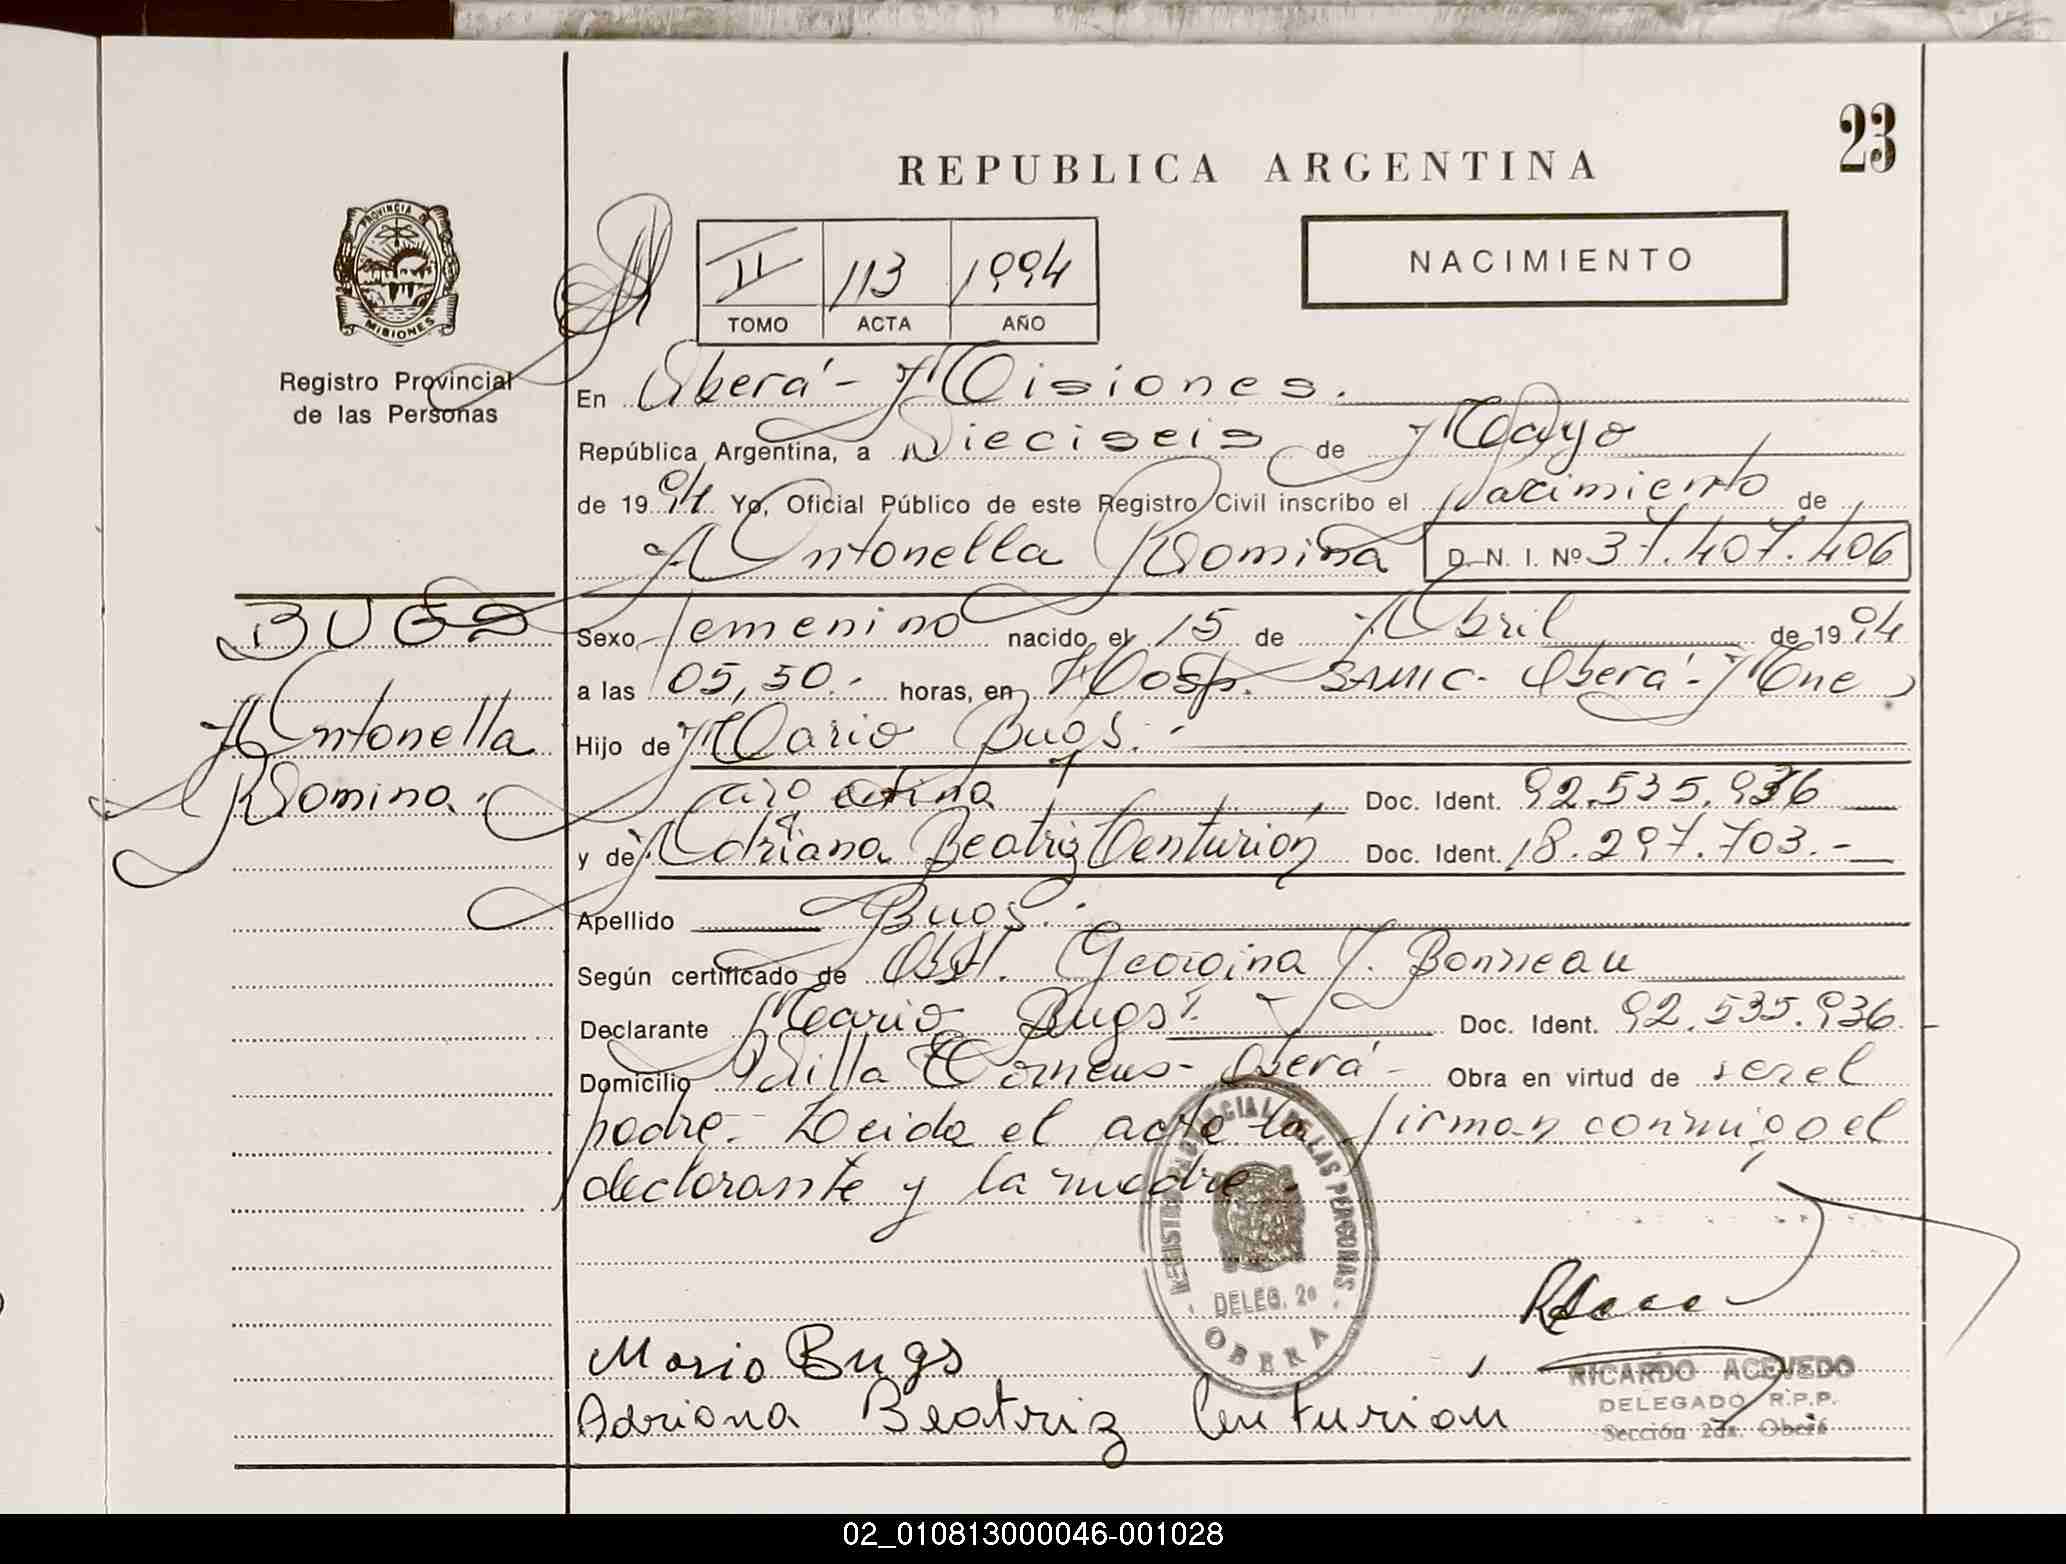 23
REPUBLICA ARGENTINA
PROVINCIA DE
MISIONES
Registro Provincial
de las Personas
II 113 1994
TOMO ACTA AÑO
NACIMIENTO
En Oberá - Misiones.
República Argentina, a Dieciseis de Mayo
de 1994 Yo, Oficial Público de este Registro Civil inscribo el Nacimiento de
Antonella Romina D. N. I. Nº 37.407.406
BUGS
Antonella
Romina.
Sexo femenino nacido el 15 de Abril de 1994
a las 05,50.- horas, en Hosp. SAMIC - Oberá - Mnes
Hijo de Mario Bugs.-
argentina Doc. Ident. 92.535.936
y de Adriana Beatriz Centurión Doc. Ident. 18.297.703.-
Apellido Bugs.-
Según certificado de Obst. Georgina Bonneau
Declarante Mario Bugs.- Doc. Ident. 92.535.936
Domicilio Villa Oberá - Obra en virtud de ser el
padre.- Leida el acta la firman conmigo el
declarante y la madre.
REGISTRO PROVINCIAL DE LAS PERSONAS
DELEG. 2a
OBERA
Mario Bugs
Adriana Beatriz Centurion
RICARDO ACEVEDO
DELEGADO R.P.P.
Sección 2da. Oberá
02_010813000046-001028